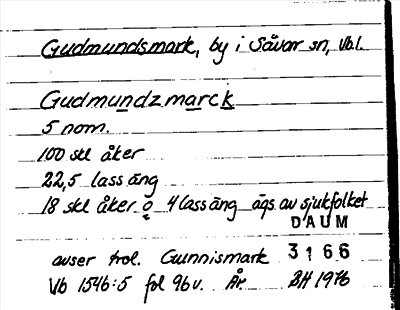 Gudmundsmark, by i Sävar sn, Vb.l.
Gudmundzmarck
5 nom.
100 skl åker
22,5 lass äng
18 skl åker o 4 lass äng ägs av sjukfolket
DAUM
avser trol. Gunnismark 3166
Vb 1546:5 fol 96v. År BH 1976